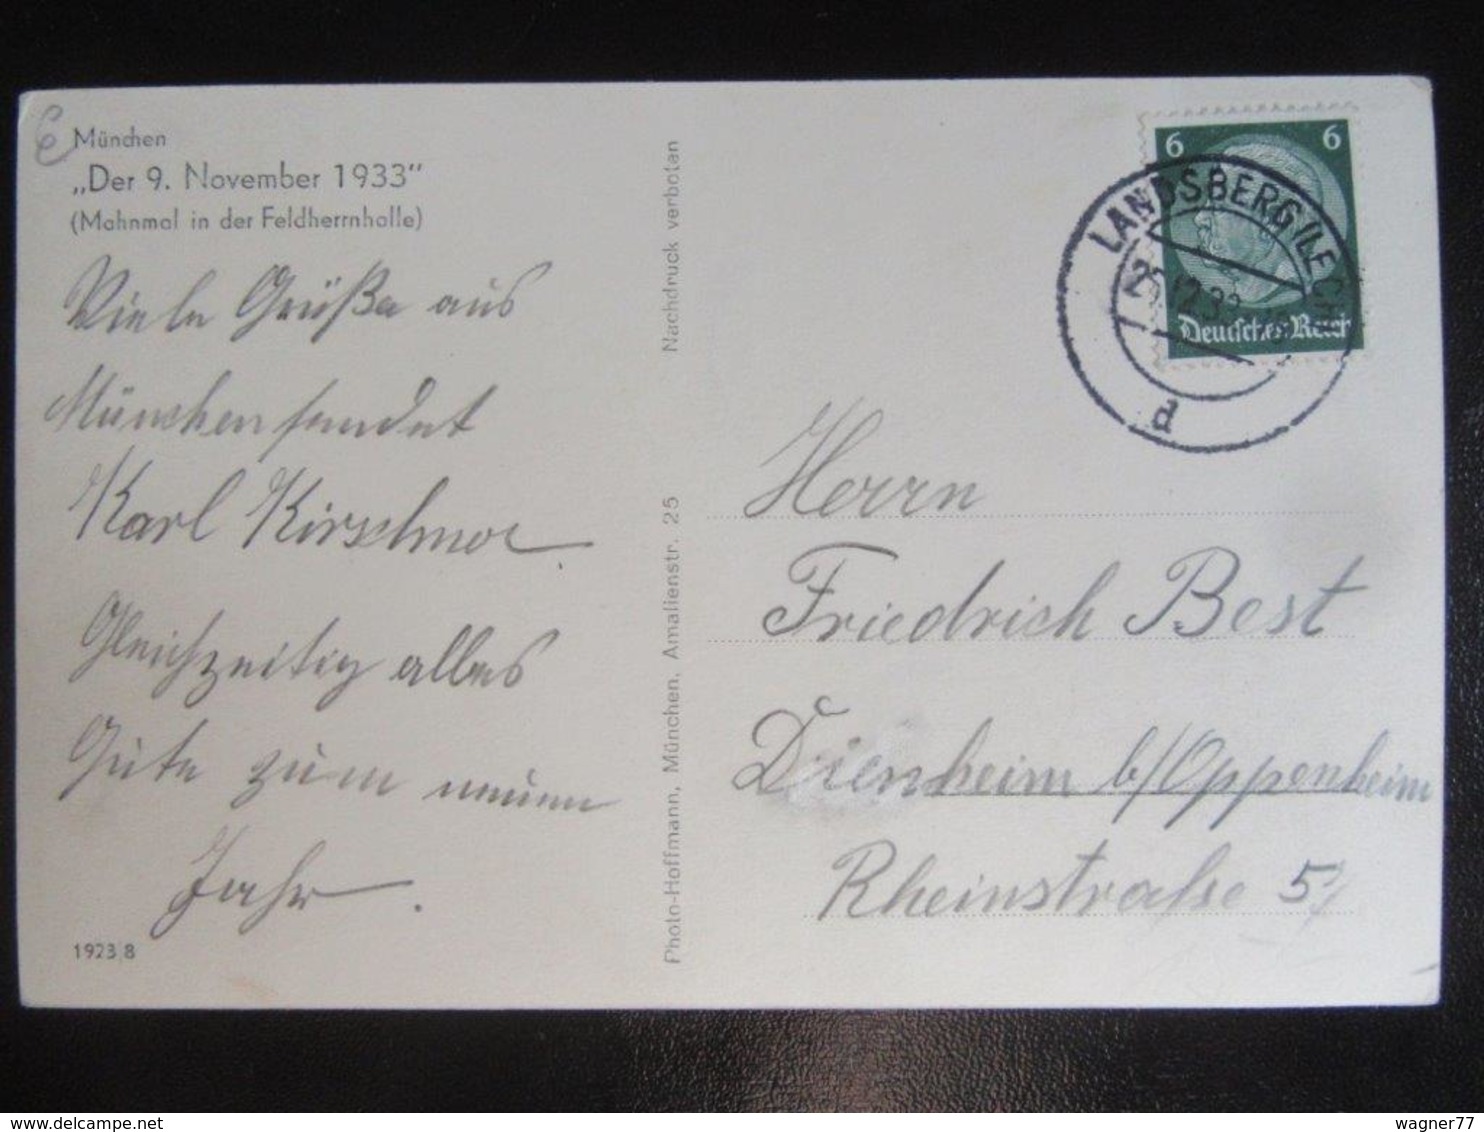 6
München
„Der 9. November 1933"
(Mahnmal in der Feldherrnhalle)
Viele Grüße aus
München sendet
Karl Kirschner.
Gleichzeitig alles
Gute zum neuen
Jahr.
1923 8
Nachdruck verboten
Photo-Hoffmann, München, Amalienstr. 25
6 6
Deutsches Reich
LANDSBERG (LECH
12.33
d
Herrn
Friedrich Best
Dienheim b/Oppenheim
Rheinstraße
wagner77